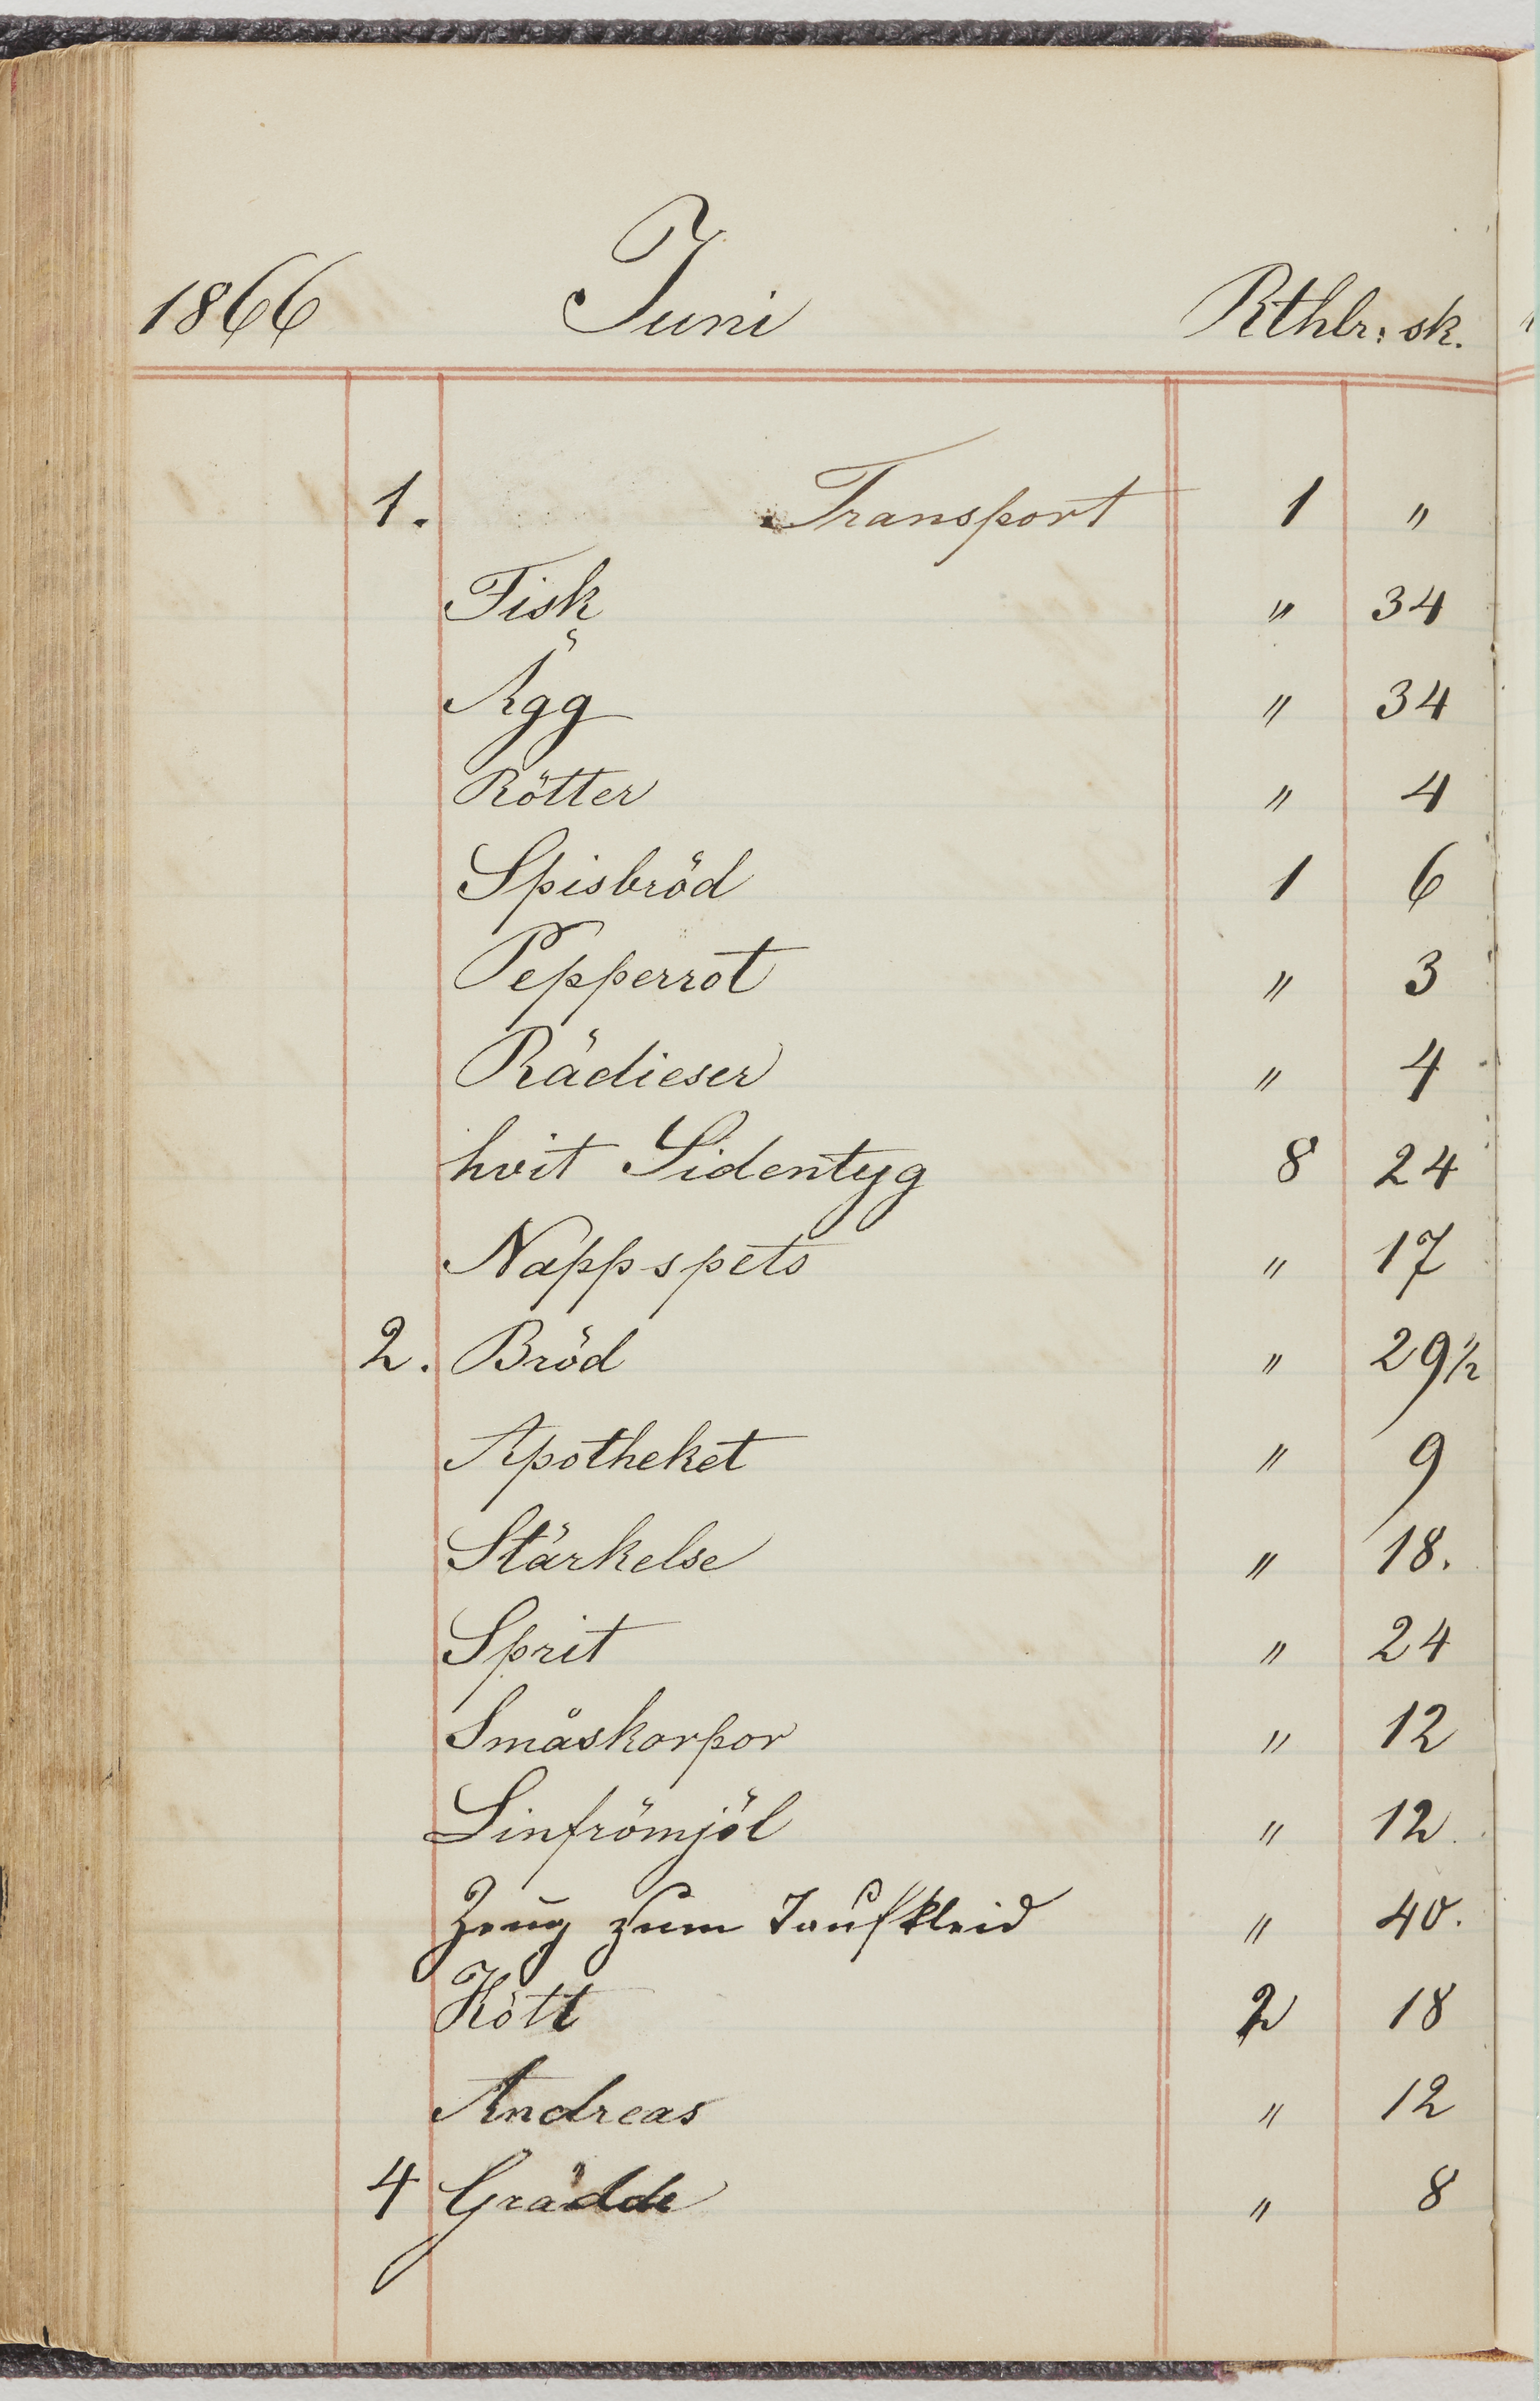 1866 Juni Rthlr: sk.
1. Transport 1 "
Fisk " 34
Ägg " 34
Rötter " 4
Spisbröd 1 6
Pepperrot " 3
Rädieser " 4
hvit Sidentyg 8 24
Nappspets " 17
2. Bröd " 29 1/2
Apotheket " 9
Stärkelse " 18.
Sprit " 24
Småskorpor " 12
Linfrömjöl " 12
Zeug zum Taufkleid " 40.
Kött 2 18
Andreas " 12
4 Grädde " 8